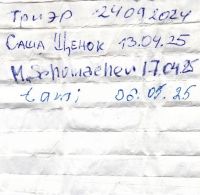 Триэр 24092024
Саша Щенок 13.04.25
M. Schumacher 17.04.25
tami 06.05.25